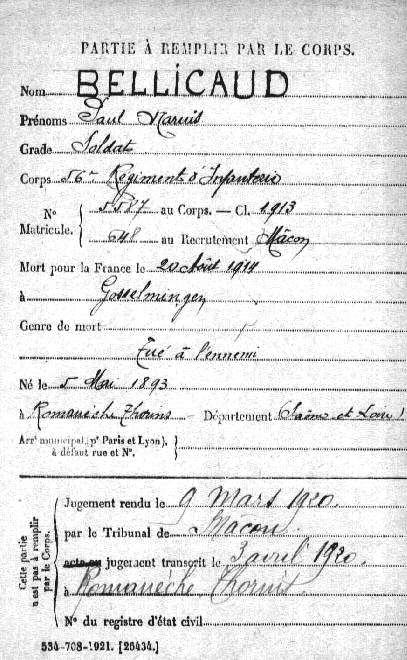 PARTIE À REMPLIR PAR LE CORPS.
Nom BELLICAUD
Prénoms Paul Marius
Grade Soldat
Corps 56e Régiment d'Infanterie
N° Matricule. { 5587 au Corps. — Cl. 1913
648 au Recrutement Mâcon
Mort pour la France le 20 Août 1914
à Gosselmingen
Genre de mort
Tué à l'ennemi
Né le 5 Mai 1893
à Romanèche Thorins — Département (Saône et Loire)
Arrt municipal (pr Paris et Lyon), à défaut rue et N°. }
Cette partie n'est pas à remplir par le Corps.
Jugement rendu le 9 Mars 1920.
par le Tribunal de Macon
acte ou jugement transcrit le 3 avril 1920.
à Romanèche Thorins
N° du registre d'état civil
534-708-1921. [26434.]